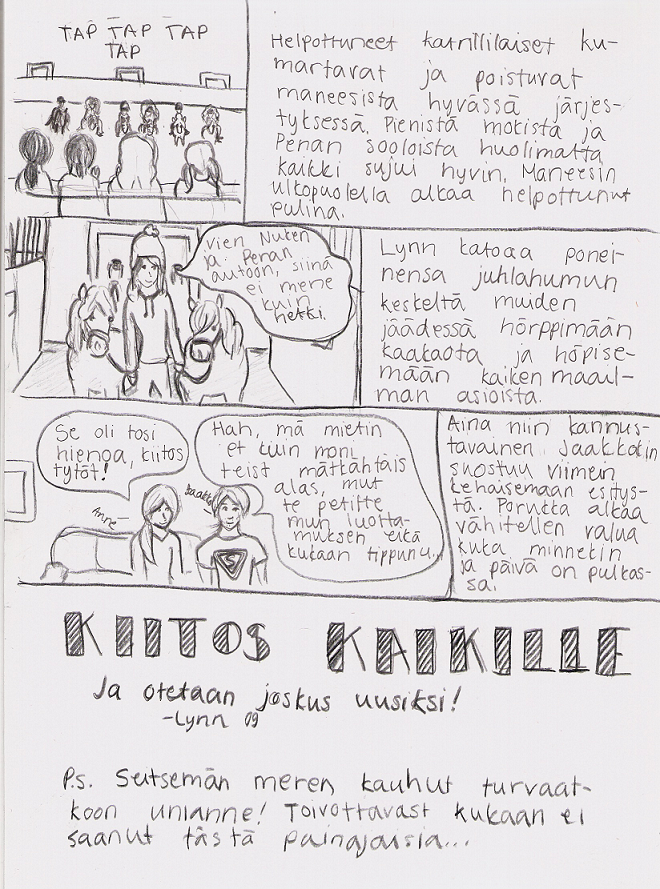 TAP TAP TAP
TAP
Helpottuneet katrillilaiset ku-
martavat ja poistuvat
maneesista hyvässä järjes-
tyksessä. Pienistä mokista ja
Penan sooloista huolimatta
kaikki sujui hyvin. Maneesin
ulkopuolella alkaa helpottunut
pulina.
Vien Nuken
ja Penan
autoon, siinä
ei mene
kuin
hetki.
Lynn katoaa ponei-
nensa juhlahumun
keskeltä muiden
jäädessä hörppimään
kaakaota ja höpise-
mään kaiken maail-
man asioista.
Se oli tosi
hienoa, kiitos
tytöt!
Anne
Hah, mä mietin
et kuin moni
teist mätkähtäis
alas, mut
te petitte
mun luotta-
muksen eikä
kukaan tippunu..
Jaakko
S
Aina niin kannus-
tavainen Jaakkokin
suostuu viimein
kehaisemaan esitys-
tä. Porukka alkaa
vähitellen valua
kuka minnekin
ja päivä on pulkas-
sa.
KIITOS KAIKILLE
Ja otetaan joskus uusiksi!
-Lynn 09
P.s. Seitsemän meren kauhut turvaat-
koon unianne! Toivottavast kukaan ei
saanut tästä painajaisia...